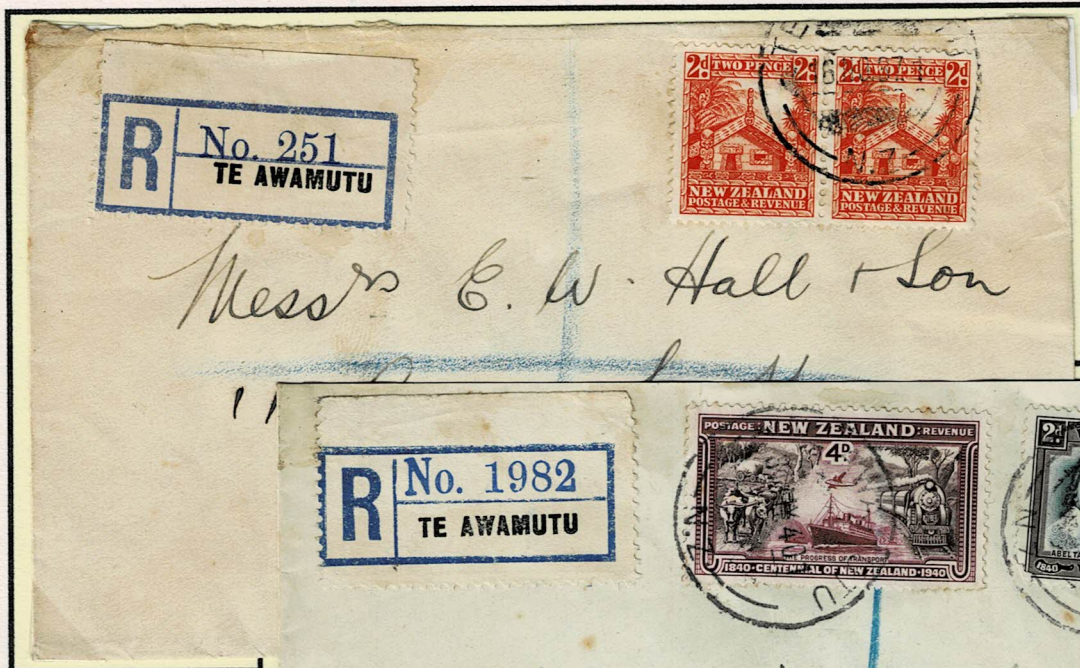 R
No. 251
TE AWAMUTU
2d TWO PENCE 2d
NEW ZEALAND
POSTAGE & REVENUE
2d TWO PENCE 2d
NEW ZEALAND
POSTAGE & REVENUE
N.Z
Messrs E. W. Hall & Son
R
No. 1982
TE AWAMUTU
POSTAGE: NEW ZEALAND :REVENUE
4D
THE PROGRESS OF TRANSPORT
1840-CENTENNIAL OF NEW ZEALAND-1940
N.Z
40
TU
2d
ABEL TA
1840